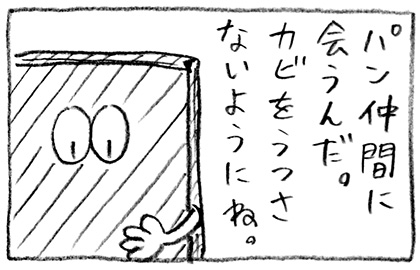 パン仲間に
会うんだ。
カビをうつさ
ないようにね。